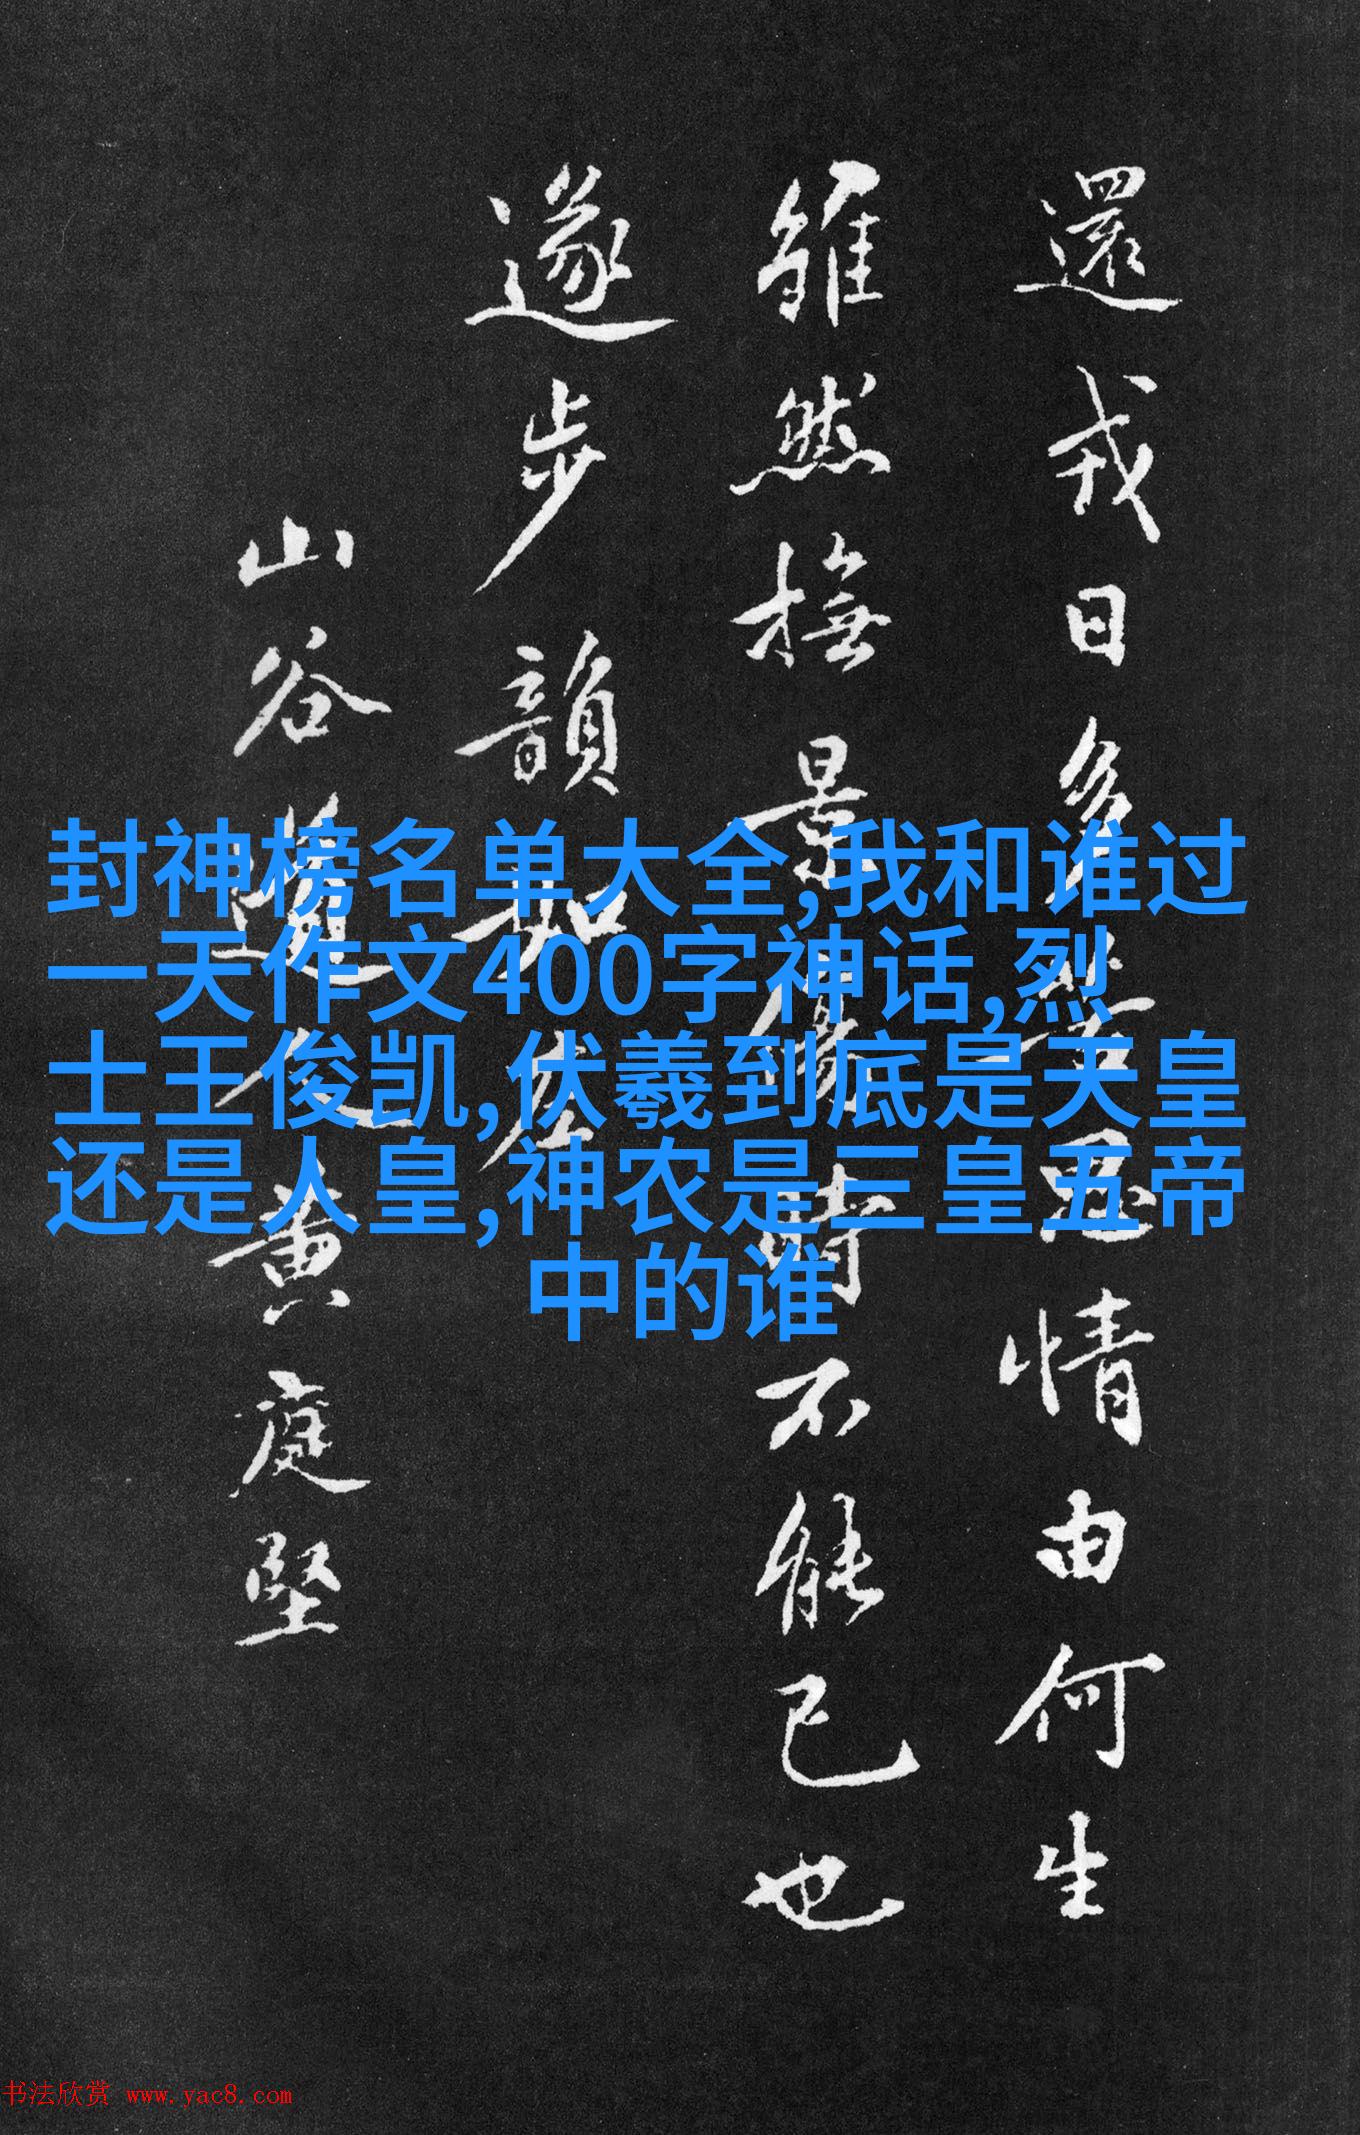 還戎日多苦思情由何生
雖然撫景傷時不能已也
遂步韻如左
山谷道人黃庭堅
封神榜名单大全,我和谁过
一天作文400字神话,烈
士王俊凯,伏羲到底是天皇
还是人皇,神农是三皇五帝
中的谁
书法欣赏 www.yac8.com